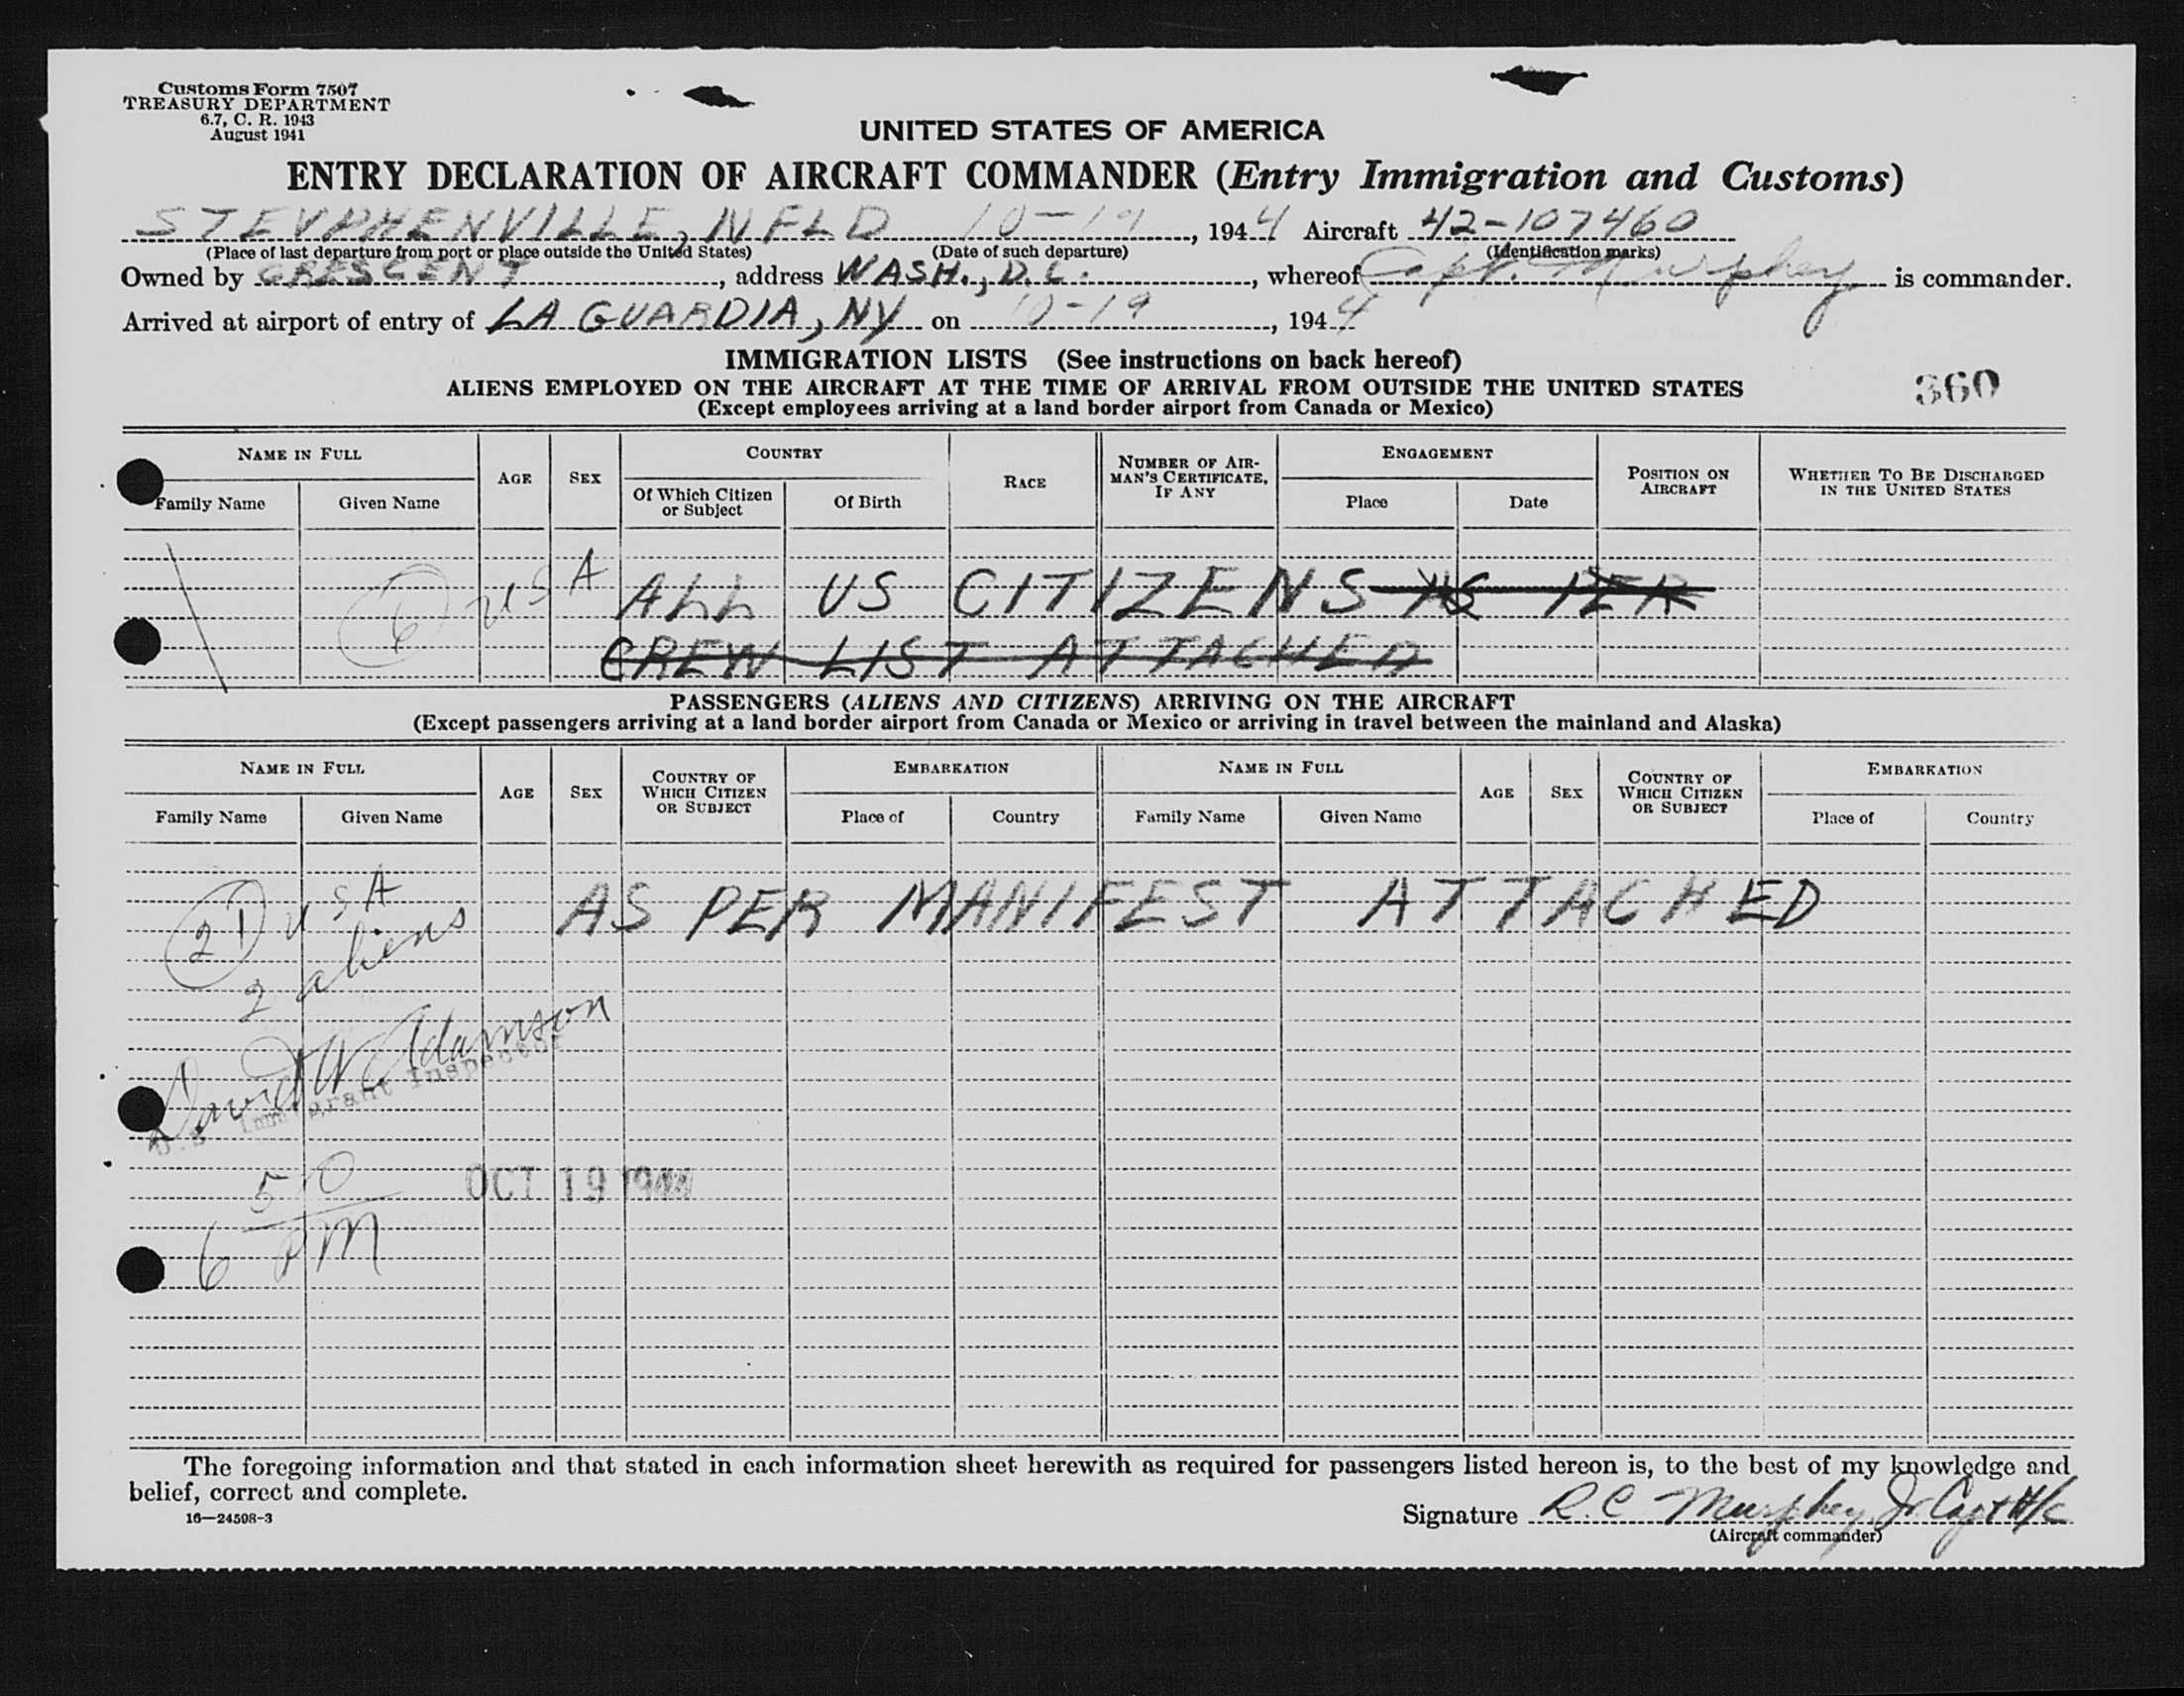 Customs Form 7507
TREASURY DEPARTMENT
6.7, C. R. 1943
August 1941
UNITED STATES OF AMERICA
ENTRY DECLARATION OF AIRCRAFT COMMANDER (Entry Immigration and Customs)
STEVPHENVILLE, NFLD 10-19, 1944 Aircraft 42-107460
(Place of last departure from port or place outside the United States) (Date of such departure) (Identification marks)
Owned by CRESCENT, address WASH., D.C., whereof Capt. Murphey is commander.
Arrived at airport of entry of LA GUARDIA, NY on 10-19, 1944
IMMIGRATION LISTS (See instructions on back hereof)
ALIENS EMPLOYED ON THE AIRCRAFT AT THE TIME OF ARRIVAL FROM OUTSIDE THE UNITED STATES
360
(Except employees arriving at a land border airport from Canada or Mexico)
NAME IN FULL AGE SEX COUNTRY RACE NUMBER OF AIR-MAN'S CERTIFICATE, IF ANY ENGAGEMENT POSITION ON AIRCRAFT WHETHER TO BE DISCHARGED IN THE UNITED STATES
Family Name Given Name Of Which Citizen or Subject Of Birth Place Date
6 USA ALL US CITIZENS AS PER
CREW LIST ATTACHED
PASSENGERS (ALIENS AND CITIZENS) ARRIVING ON THE AIRCRAFT
(Except passengers arriving at a land border airport from Canada or Mexico or arriving in travel between the mainland and Alaska)
NAME IN FULL AGE SEX COUNTRY OF WHICH CITIZEN OR SUBJECT EMBARKATION NAME IN FULL AGE SEX COUNTRY OF WHICH CITIZEN OR SUBJECT EMBARKATION
Family Name Given Name Place of Country Family Name Given Name Place of Country
21 USA AS PER MANIFEST ATTACHED
2 aliens
David W. Adamson
U.S. Immigrant Inspector
6 50 PM
OCT 19 1944
The foregoing information and that stated in each information sheet herewith as required for passengers listed hereon is, to the best of my knowledge and
belief, correct and complete.
16—24598-3
Signature R. C. Murphey, Jr. Capt A/C
(Aircraft commander)